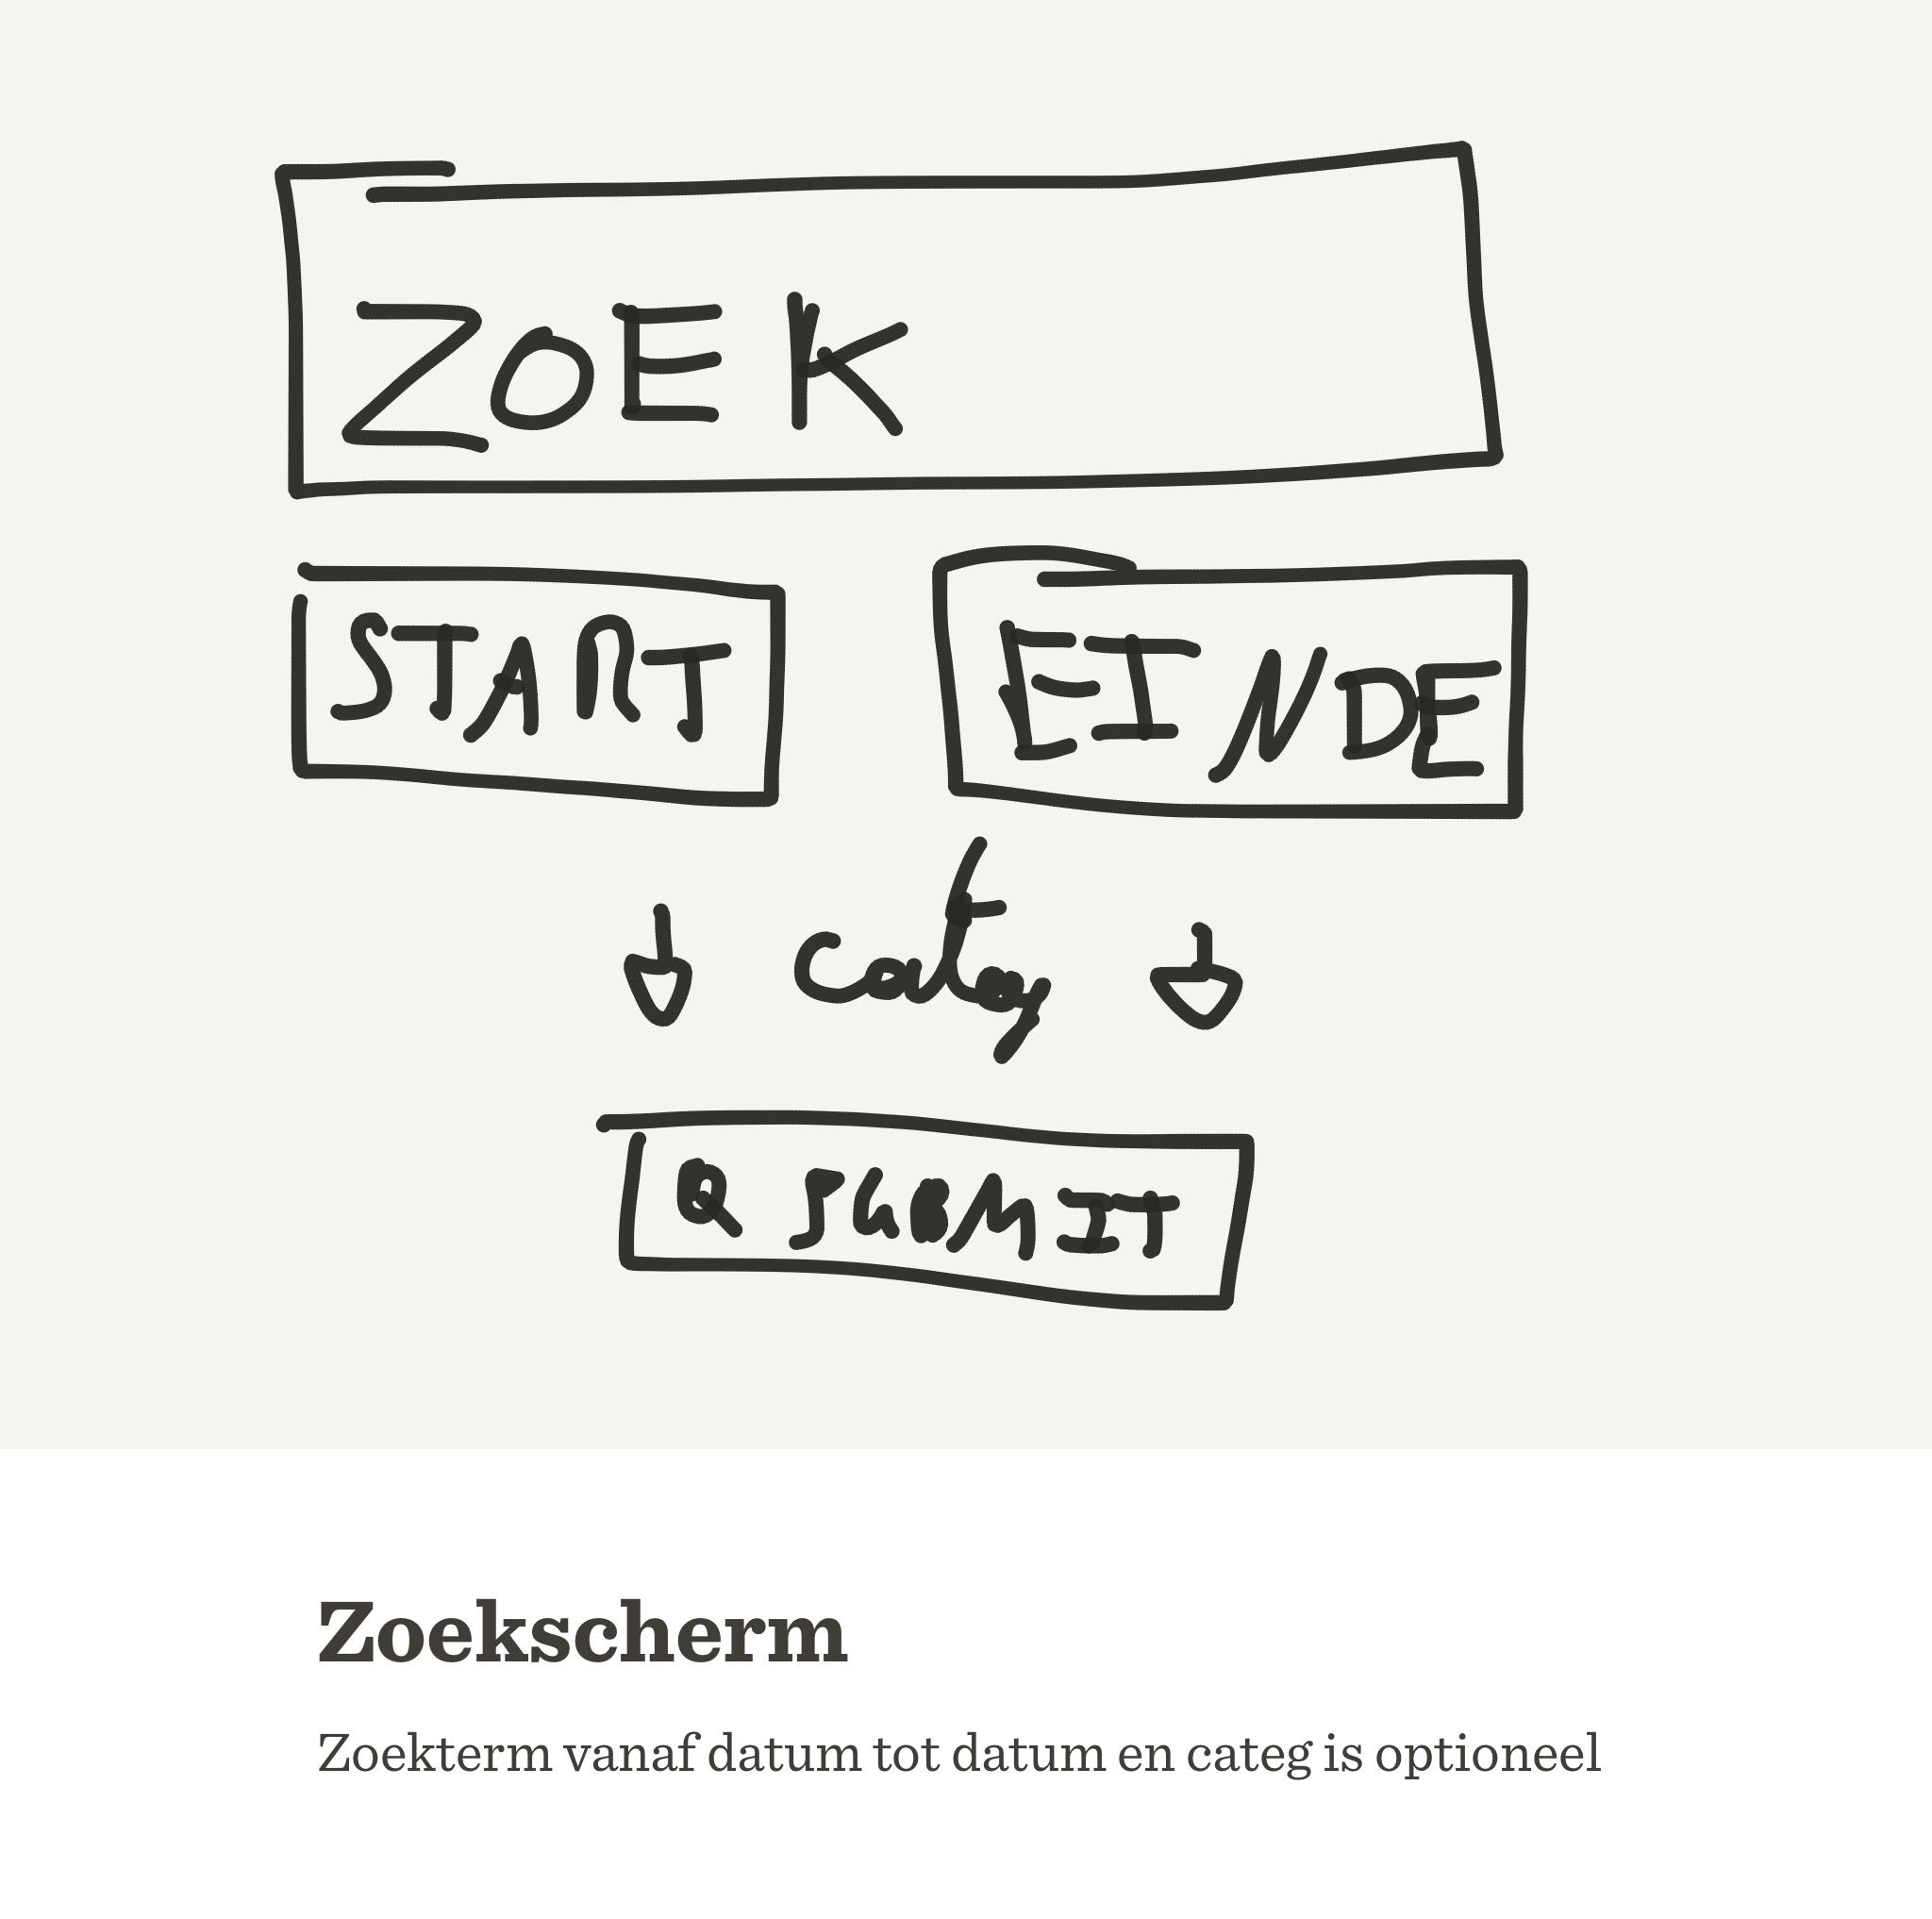 ZOEK
START EINDE
Categ
Q SUBMIT
Zoekscherm
Zoekterm vanaf datum tot datum en categ is optioneel